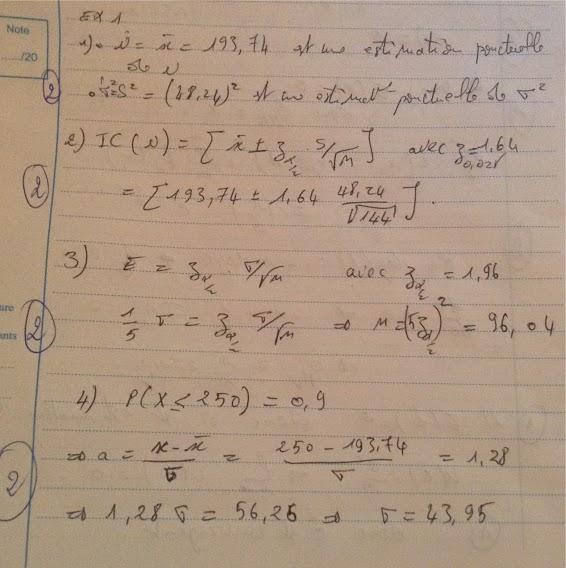 Note
..../20
EX 1
1) • û = x̄ = 193,74 est une estimation ponctuelle
de υ
2
• σ̂² = S² = (48,24)² est un estimat° ponctuelle de σ²
2) IC(υ) = [x̄ ± z_α/2 s/√n] avec z_0,025 = 1,64
2
= [193,74 ± 1,64 48,24/√144].
3) E = z_α/2 · σ/√n avec z_α/2 = 1,96
2
1/5 σ = z_α/2 σ/√n ⇒ n = (5z_α/2)² = 96,04
4) P(X ≤ 250) = 0,9
⇒ a = (x - x̄)/σ = (250 - 193,74)/σ = 1,28
2
⇒ 1,28 σ = 56,26 ⇒ σ = 43,95